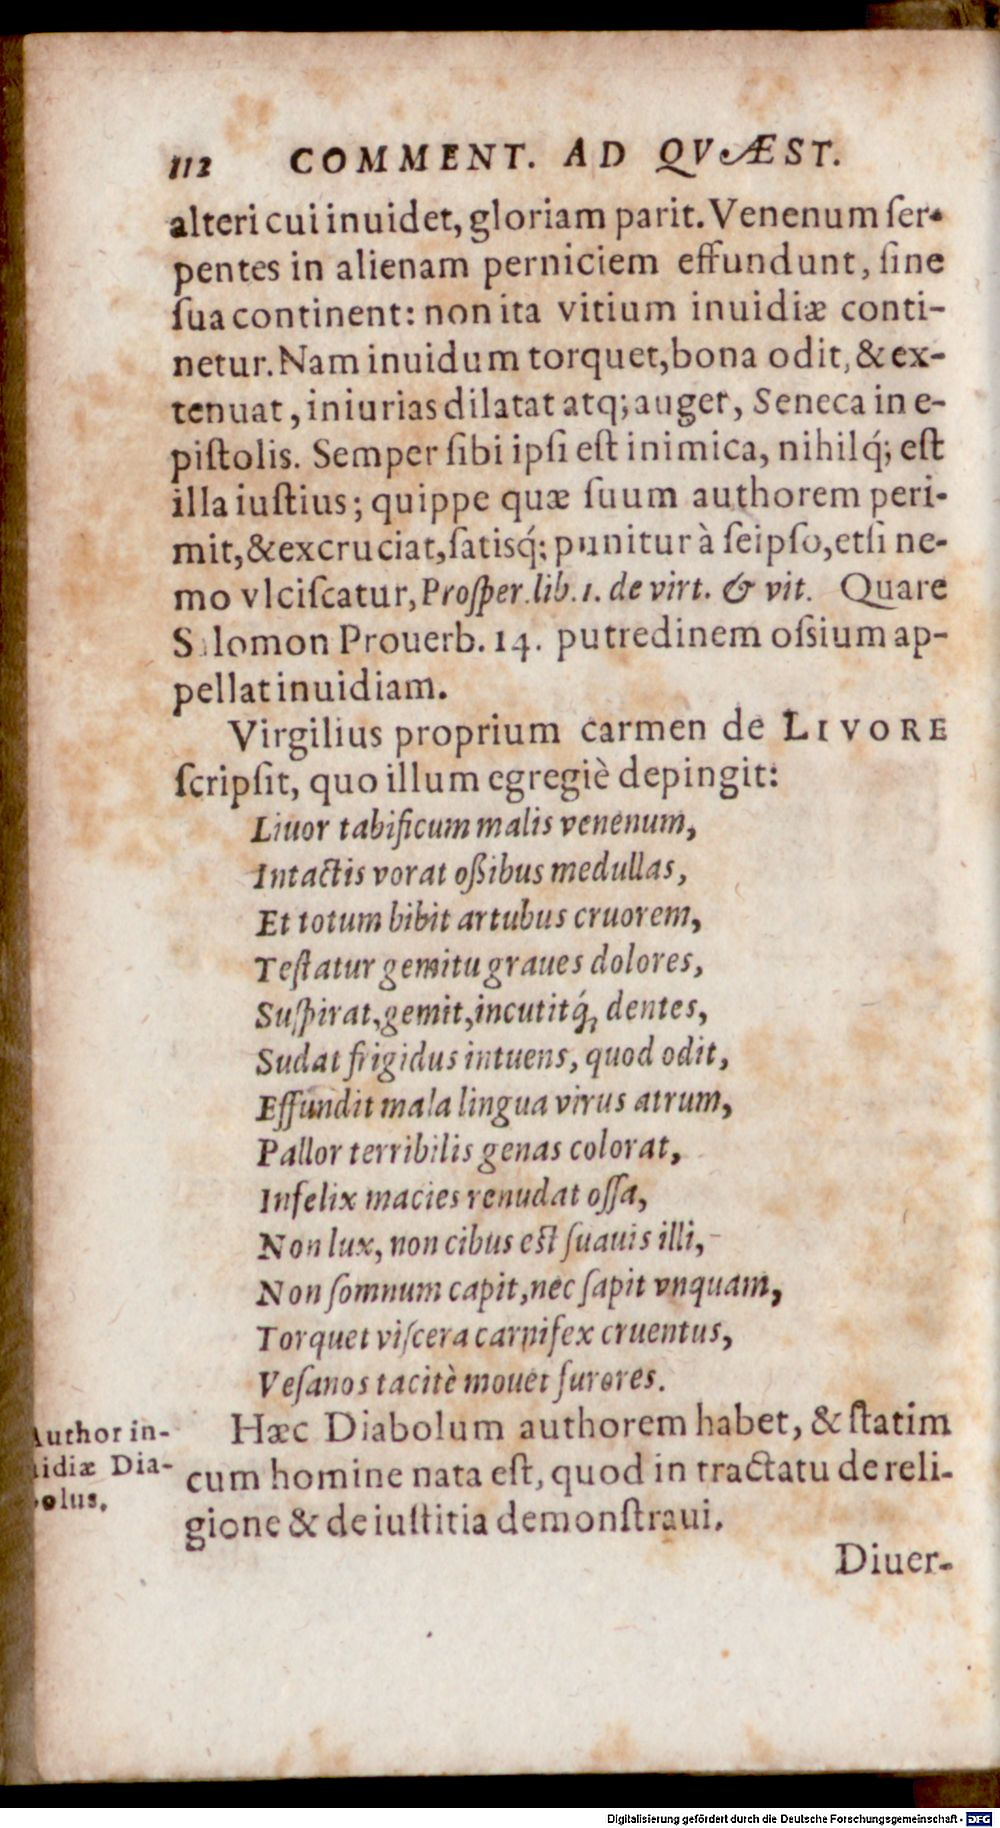 112 COMMENT. AD QVÆST.
alteri cui inuidet, gloriam parit. Venenum ſer-
pentes in alienam perniciem effundunt, ſine
ſua continent: non ita vitium inuidiæ conti-
netur. Nam inuidum torquet, bona odit, & ex-
tenuat, iniurias dilatat atq; auget, Seneca in e-
piſtolis. Semper ſibi ipſi eſt inimica, nihilq́; eſt
illa iuſtius; quippe quæ ſuum authorem peri-
mit, & excruciat, ſatisq́; punitur à ſeipſo, etſi ne-
mo vlciſcatur, Proſper. lib. 1. de virt. & vit. Quare
Salomon Prouerb. 14. putredinem oſsium ap-
pellat inuidiam.
Virgilius proprium carmen de LIVORE
ſcripſit, quo illum egregiè depingit:
Liuor tabificum malis venenum,
Intactis vorat oßibus medullas,
Et totum bibit artubus cruorem,
Teſtatur gemitu graues dolores,
Suſpirat, gemit, incutitq́, dentes,
Sudat frigidus intuens, quod odit,
Effundit mala lingua virus atrum,
Pallor terribilis genas colorat,
Infelix macies renudat oſſa,
Non lux, non cibus eſt ſuauis illi,
Non ſomnum capit, nec ſapit vnquam,
Torquet viſcera carnifex cruentus,
Veſanos tacitè mouet furores.
Hæc Diabolum authorem habet, & ſtatim
cum homine nata eſt, quod in tractatu de reli-
gione & de iuſtitia demonſtraui.
Author in-
uidiæ Dia-
bolus.
Diuer-
Digitalisierung gefördert durch die Deutsche Forschungsgemeinschaft - DFG